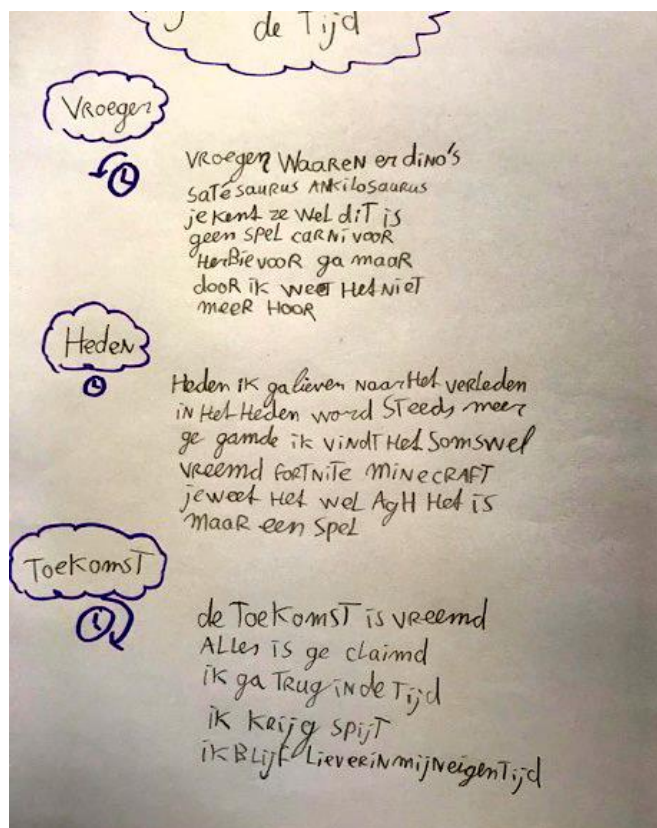 de Tijd
Vroeger
Vroegen Waaren er dino's
Satésaurus Ankilosaurus
je kent ze wel dit is
geen spel carnivoor
Herbievoor ga maar
door ik weet Het Niet
meer Hoor
Heden
Heden ik ga liever naar Het verleden
in Het Heden word Steeds meer
ge gamde ik vindt Het Soms wel
vreemd Fortnite Minecraft
je weet Het wel AgH Het is
maar een Spel
Toekomst
de Toekomst is vreemd
Alles is ge claimd
ik ga Trug in de Tijd
ik krijg spijt
ik Blijf Liever in mijn eigen Tijd